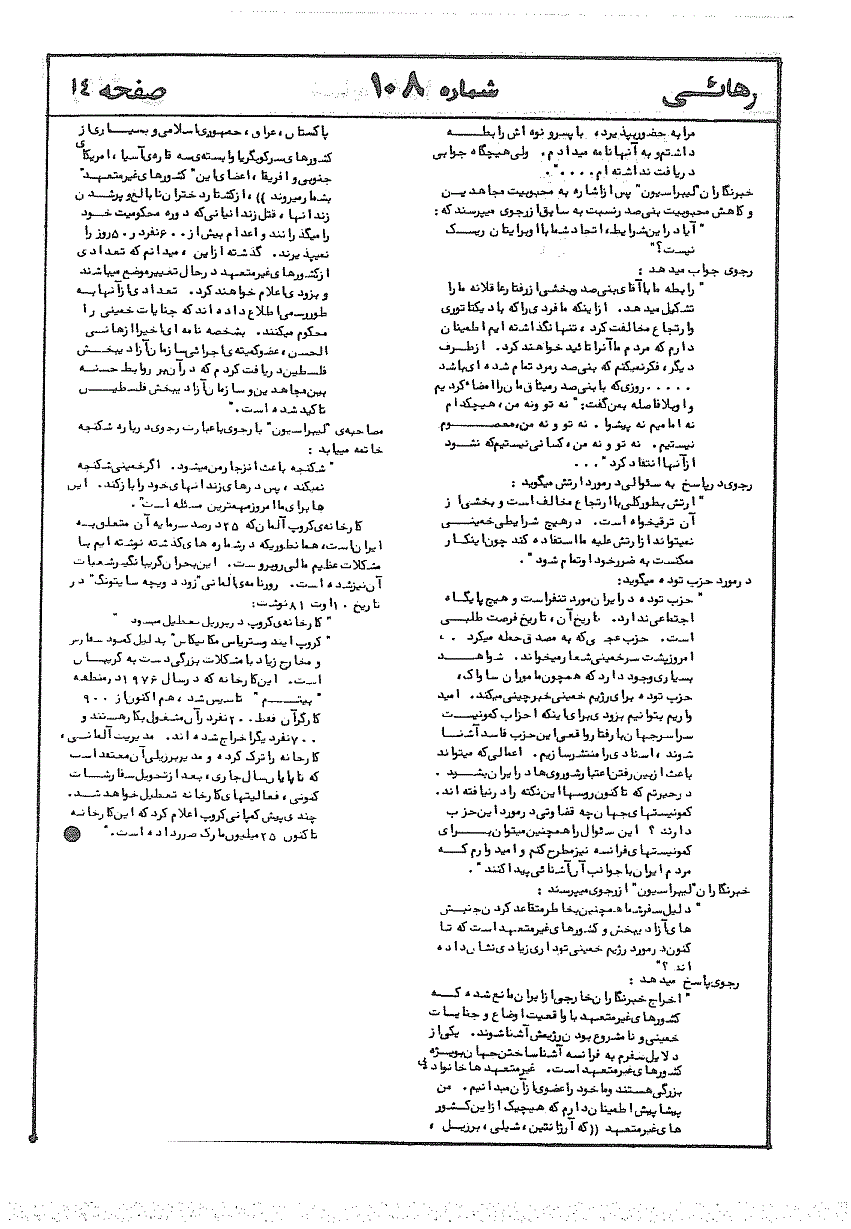 رهائی
شماره ۱۰۸
صفحه ۱۴
مرا به حضور بپذیرد، با پسر و نوه اش رابطه
داشتم و به آنها نامه میدادم. ولی هیچگاه جوابی
دریافت نداشته ام.....".
خبرنگاران "لیبراسیون" پس از اشاره به محبوبیت مجاهدین
و کاهش محبوبیت بنی صدر نسبت به سابق از رجوی میپرسند که:
"آیا در این شرایط، اتحاد شما با او برایتان ریسک
نیست؟"
رجوی جواب میدهد:
"رابطه ما با آقای بنی صدر بخشی از رفتار عاقلانه ما را
تشکیل میدهد. از اینکه ما فردی را که با دیکتاتوری
و ارتجاع مخالفت کرد، تنها نگذاشته ایم اطمینان
دارم که مردم ما آنرا تائید خواهند کرد. از طرف
دیگر، فکر نمیکنم که بنی صدر مرد تمام شده ای باشد
.....روزی که با بنی صدر میثاقمان را امضاء کردیم
و او بلافاصله بمن گفت: "نه تو و نه من، هیچکدام
نه امامیم نه پیشوا. نه تو و نه من، معصوم
نیستیم. نه تو و نه من، کسانی نیستیم که نشود
از آنها انتقاد کرد"...
رجوی در پاسخ به سئوالی در مورد ارتش میگوید:
"ارتش بطور کلی با ارتجاع مخالف است و بخشی از
آن ترقیخواه است. در هیچ شرایطی خمینی
نمیتواند از ارتش علیه ما استفاده کند چون اینکار
ممکنست به ضرر خود او تمام شود".
در مورد حزب توده میگوید:
"حزب توده در ایران مورد تنفر است و هیچ پایگاه
اجتماعی ندارد. تاریخ آن، تاریخ فرصت طلبی
است. حزب عجیبی که به مصدق حمله میکرد..،
امروز پشت سر خمینی شعار میخواند. شواهد
بسیاری وجود دارد که همچون ماموران ساواک،
حزب توده برای رژیم خمینی خبرچینی میکند. امید
واریم بتوانیم بزودی برای اینکه احزاب کمونیست
سراسر جهان با رفتار واقعی این حزب فاسد آشنا
شوند، اسنادی را منتشر سازیم. اعمالی که میتواند
باعث از بین رفتن اعتبار شوروی ها در ایران بشود.
در حیرتم که تاکنون روسها این نکته را در نیافته اند.
کمونیستهای جهان چه قضاوتی در مورد این حزب
دارند؟ این سئوال را همچنین میتوان برای
کمونیستهای فرانسه نیز مطرح کنم و امیدوارم که
مردم ایران با جوانب آن آشنائی پیدا کنند".
خبرنگاران "لیبراسیون" از رجوی میپرسند:
"دلیل سفر شما همچنین بخاطر متقاعد کردن جنبش
های آزادیبخش و کشورهای غیر متعهد است که تا
کنون در مورد رژیم خمینی تودداری زیادی نشان داده
اند؟"
رجوی پاسخ میدهد:
"اخراج خبرنگاران خارجی از ایران مانع شده که
کشورهای غیر متعهد با واقعیت اوضاع و جنایات
خمینی و نامشروع بودن رژیمش آشنا شوند. یکی از
دلایل سفرم به فرانسه آشنا ساختن جهان بویژه
کشورهای غیر متعهد است. غیر متعهدها خانوادهٔ
بزرگی هستند و ما خود را عضوی از آن میدانیم. من
پیشاپیش اطمینان دارم که هیچیک از این کشور
های غیر متعهد ((که آرژانتین، شیلی، برزیل،
پاکستان، عراق، جمهوری اسلامی و بسیاری از
کشورهای سرکوبگر یا وابسته ی سه قاره ی آسیا، امریکای
جنوبی و افریقا، اعضای این "کشورهای غیر متعهد"
بشمار میروند))، از کشتار دختران نابالغ و پرشدن
زندانها، قتل زندانیانی که دوره محکومیت خود
را میگذرانند و اعدام بیش از ۶۰۰ نفر در ۵۰ روز را
نمیپذیرند. گذشته از این، میدانم که تعدادی
از کشورهای غیر متعهد در حال تغییر موضع میباشند
و بزودی اعلام خواهند کرد. تعدادی از آنها به
طور رسمی اطلاع داده اند که جنایات خمینی را
محکوم میکنند. بشخصه نامه ای اخیرا از هانی
الحسن، عضو کمیته ی اجرائی سازمان آزادیبخش
فلسطین دریافت کردم که در آن بر روابط حسنه
بین مجاهدین و سازمان آزادیبخش فلسطین
تاکید شده است."
مصاحبه ی "لیبراسیون" با رجوی با عبارت رجوی درباره شکنجه
خاتمه مییابد:
"شکنجه باعث انزجار من میشود. اگر خمینی شکنجه
نمیکند، پس درهای زندانهای خود را باز کند. این
ها برای ما امروز مهمترین مسئله است".
کارخانه ی کروپ آلمان که ۲۵ درصد سرمایه آن متعلق به
ایران است، همانطوریکه در شماره های گذشته نوشته ایم با
مشکلات عظیم مالی روبروست. این بحران گریبانگیر شعبات
آن نیز شده است. روزنامه ی المانی "زود دویچه سایتونگ" در
تاریخ ۱۰ اوت ۸۱ نوشت:
"کارخانه ی کروپ در برزیل تعطیل میشود"
"کروپ ایندوستریاس مکانیکاس" به دلیل کمبود سفارش
و مخارج زیاد با مشکلات بزرگی دست به گریبان
است. این کارخانه که در سال ۱۹۷۶ در منطقه
"بیتیم" تاسیس شد، هم اکنون از ۹۰۰
کارگر آن فقط ۲۰۰ نفر در آن مشغول بکار هستند و
۷۰۰ نفر دیگر اخراج شده اند. مدیریت آلمانی،
کارخانه را ترک کرده و مدیر برزیلی آن معتقد است
که تا پایان سال جاری، بعد از تحویل سفارشات
کنونی، فعالیتهای کارخانه تعطیل خواهد شد.
چندی پیش کمپانی کروپ اعلام کرد که این کارخانه
تاکنون ۲۵ میلیون مارک ضرر داده است."